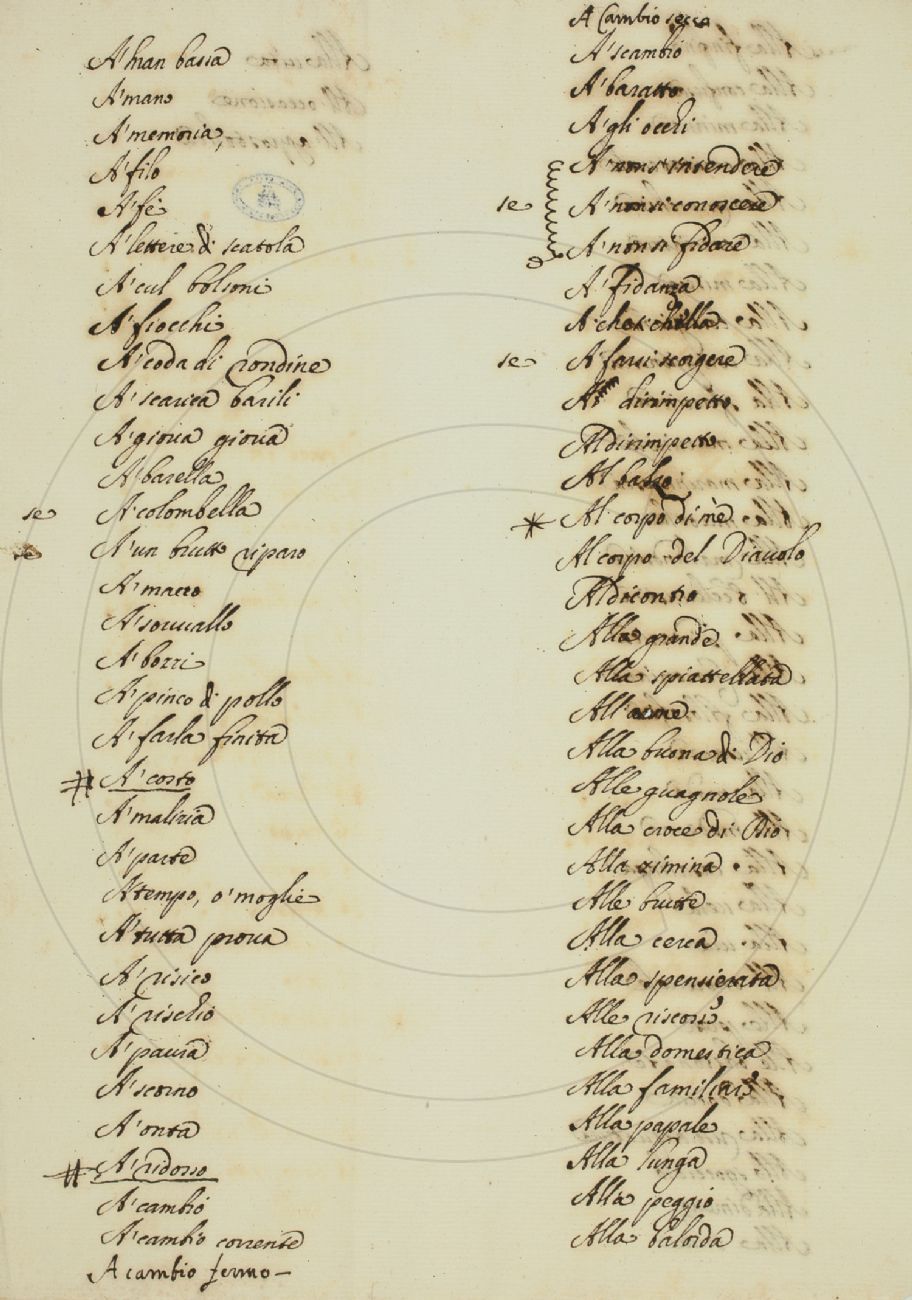 A' man bassa
A' mano
A' memoria,
A' filo
A' fè
A' lettere di scatola
A' cul bolsoni
A' fiocchi
A' coda di rondine
A' scarica barili
A' giova giova
A' barella
se A' colombella
se A' un brutto riparo
A' macco
A' sovvallo
A' borri
A' pinco di pollo
A' farla finita
# A' costo
A' malizia
A' parte
A' tempo, o' moglie
A' tutta prova
A' risico
A' rischio
A' paura
A' scorno
A' onta
# A' ridosso
A' cambio
A' cambio corrente
A cambio fermo –
A Cambio secco
A' scambio
A' baratto
A' gli occhi
A' non s'intendere
se A' non si conoscere
A' non si fidare
A' fidanza
A' chetichella
se A' farsi scorgere
A' dirimpetto
Al dirimpetto
Al balzo
* Al corpo di mè
Al corpo del Diavolo
Al dicontro
Alla grande
Alla spiattellata
All'arme
Alla buona di Dio
Alle guagnole
Alla croce di Dio
Alla zimina
Alle brutte
Alla cerca
Alla spensierata
Alle riscosse
Alla domestica
Alla familiare
Alla papale
Alla lunga
Alla peggio
Alla balorda